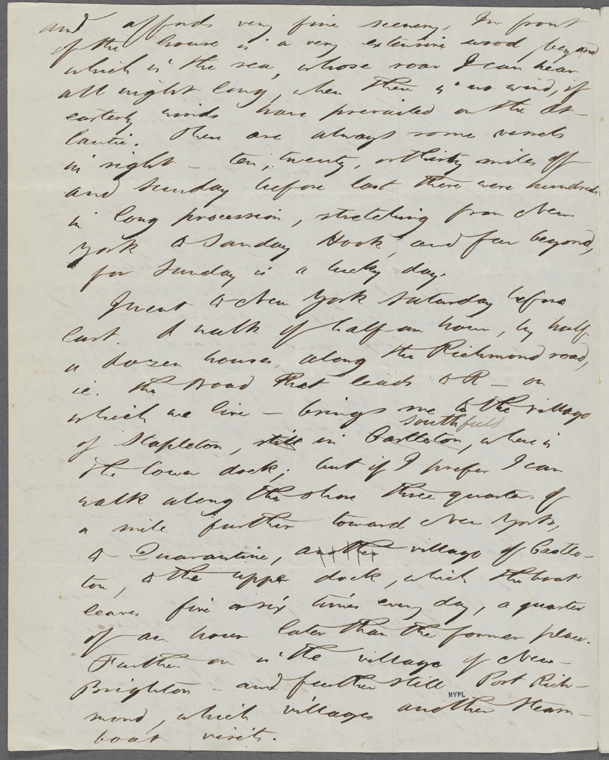 and affords very fine scenery. In front
of the house is a very extensive wood, beyond
which is the sea, whose roar I can hear
all night long, when there is no wind, if
easterly winds have prevailed on the At-
lantic. There are always some vessels
in sight — ten, twenty, or thirty miles off
and Sunday before last there were hundreds
in long procession, stretching from New
York to Sandy Hook, and far beyond,
for Sunday is a lucky day.
I went to New York Saturday before
last. A walk of half an hour, by half
a dozen houses along the Richmond road,
ie. the Road that leads to R — on
which we live — brings me to the village
southfield
of Stapleton, still in Castleton, where is
the lower dock; but if I prefer I can
walk along the shore three quarters of
a mile further toward New York,
to Quarantine, another village of Castle-
ton, to the upper dock, which the boat
leaves five or six times every day, a quarter
of an hour later than the former place.
Further on is the village of New-
Brighton — and further still Port Rich-
NYPL
mond, which villages another steam-
boat visits.